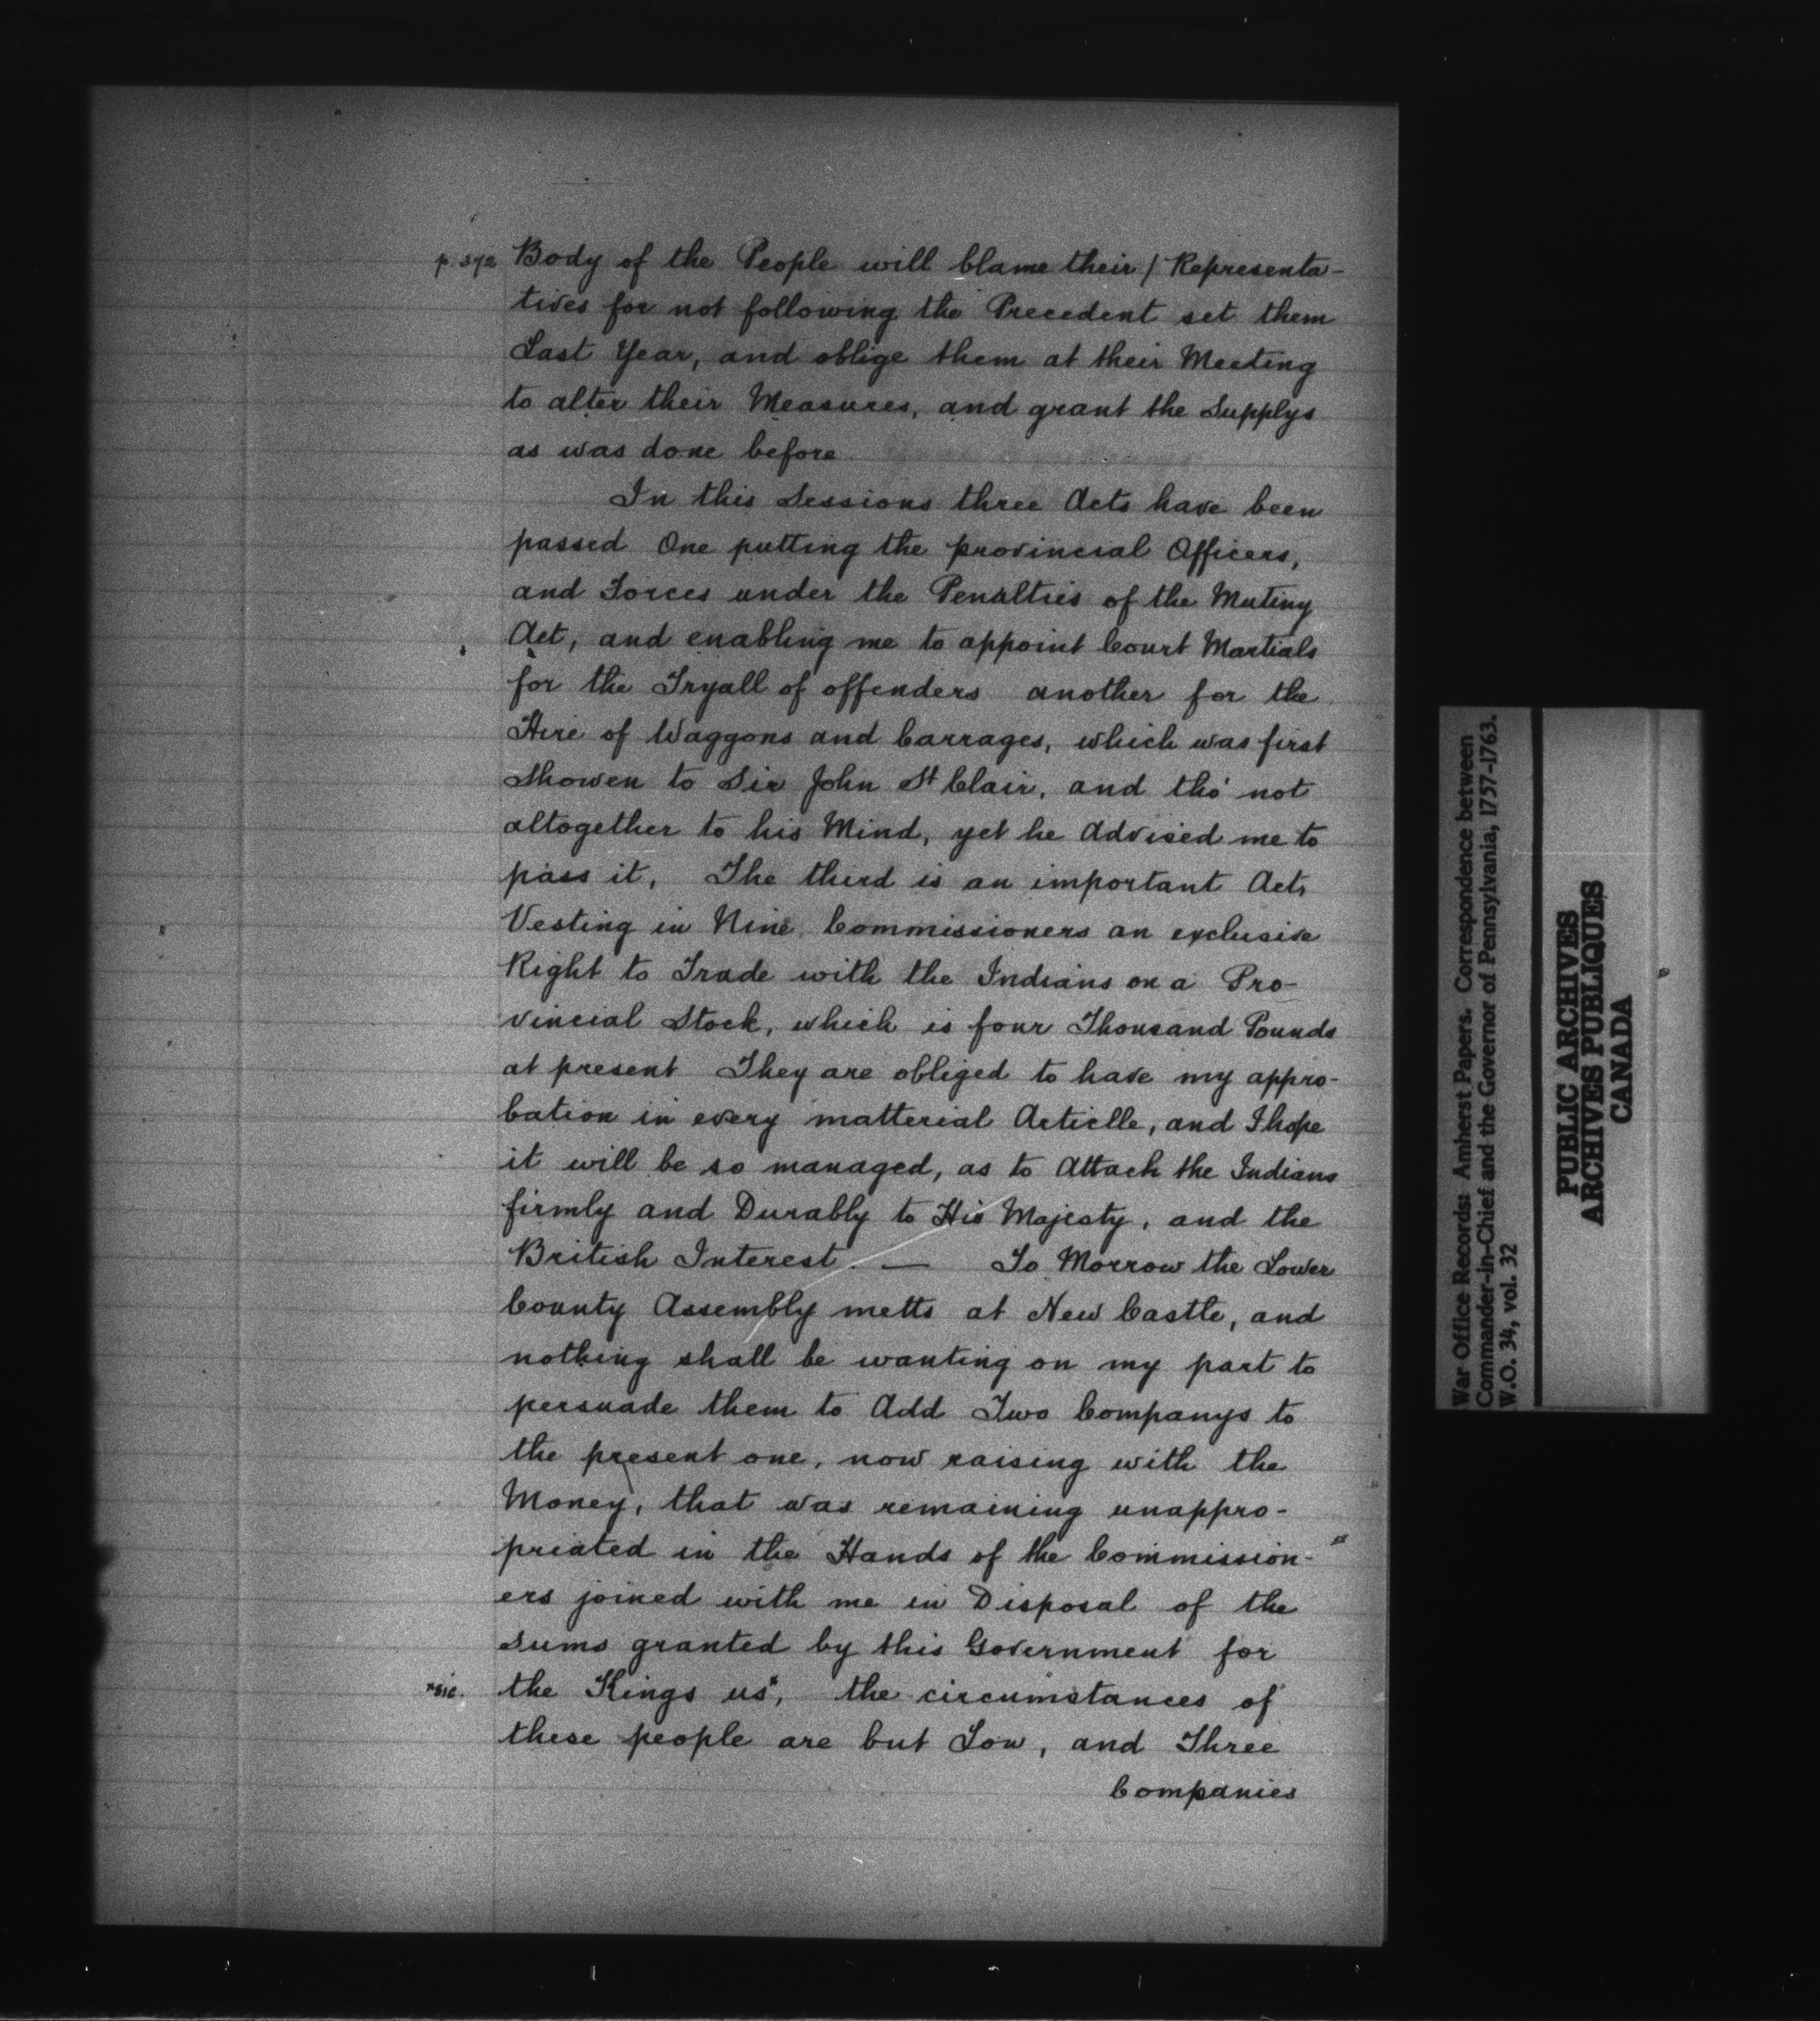 Body of the People will blame their / Representa-
tives for not following the Precedent set them
Last Year, and oblige them at their Meeting
to alter their Measures, and grant the Supplys
as was done before
In this Sessions three Acts have been
passed One putting the provincial Officers,
and Forces under the Penalties of the Mutiny
Act, and enabling me to appoint Court Martials
for the Tryall of offenders another for the
Hire of Waggons and Carrages, which was first
Showen to Sir John St Clair, and tho' not
altogether to his Mind, yet he Advised me to
pass it, The third is an important Act,
Vesting in Nine Commissioners an exclusive
Right to Trade with the Indians on a Pro-
vincial Stock, which is four Thousand Pounds
at present They are obliged to have my appro-
bation in every matterial Articlle, and I hope
it will be so managed, as to Attach the Indians
firmly and Durably to His Majesty, and the
British Interest. — To Morrow the Lower
County Assembly metts at New Castle, and
nothing shall be wanting on my part to
persuade them to Add Two Companys to
the present one, now raising with the
Money, that was remaining unappro-
priated in the Hands of the Commission-
ers joined with me in Disposal of the
Sums granted by this Government for
*sic. the Kings us*, the circumstances of
these people are but Low, and Three
Companies
War Office Records: Amherst Papers. Correspondence between
Commander-in-Chief and the Governor of Pennsylvania, 1757-1763.
W.O. 34, vol. 32
PUBLIC ARCHIVES
ARCHIVES PUBLIQUES
CANADA